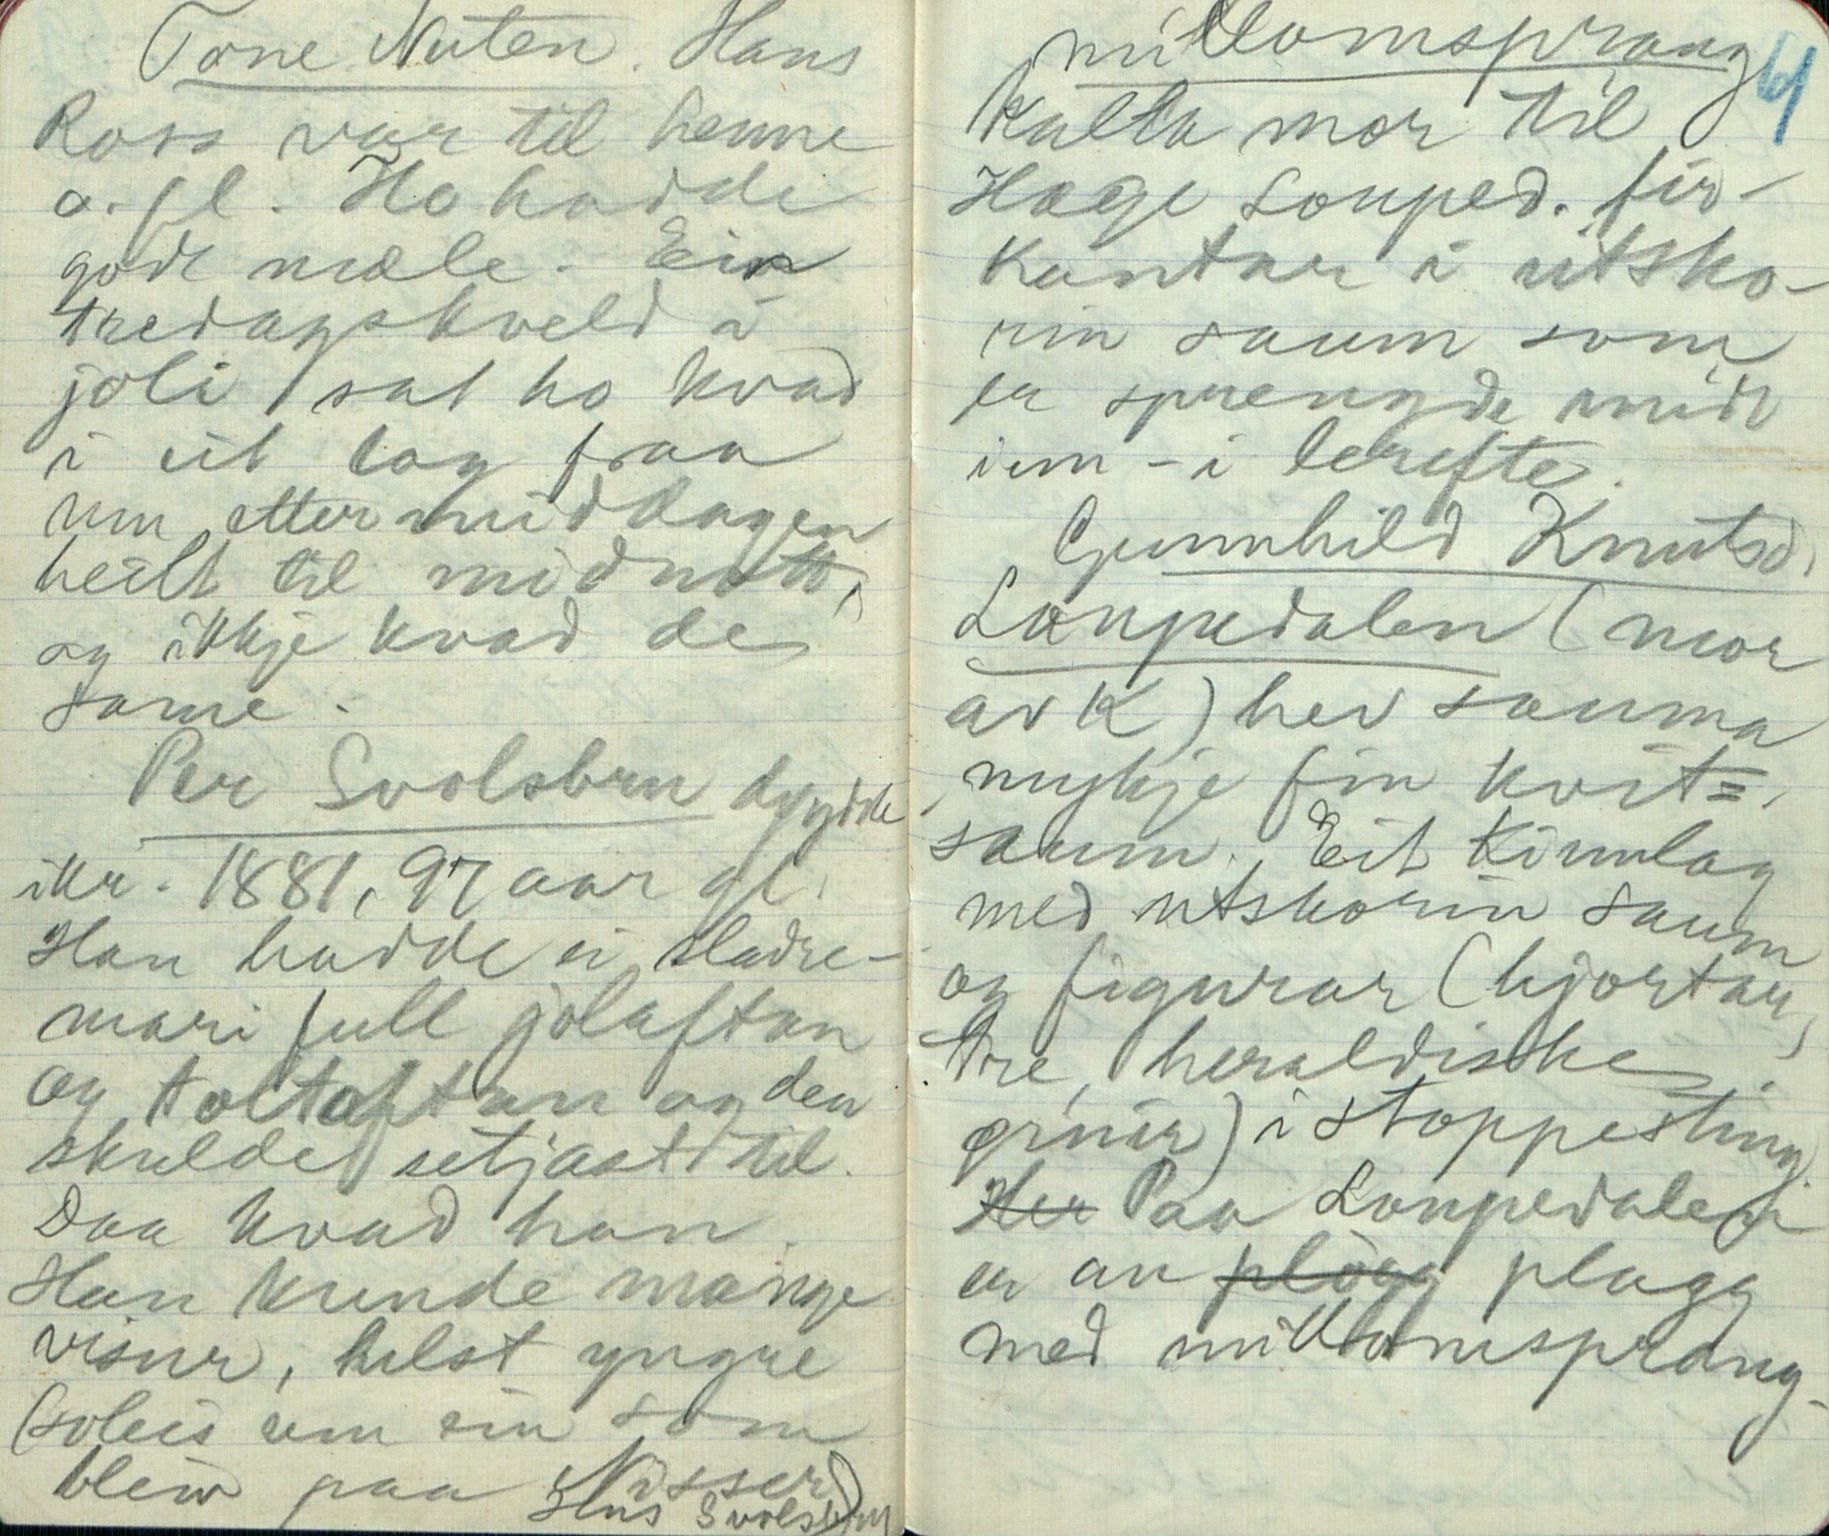 Tone Nuten. Hans
Ross var til henne
o. fl. Ho hadde
godt mæle. Ein
tredagskveld i
joli sat ho kvad
i eit tog fraa
um ettermiddagen
heilt til midnatt,
og ikkje kvad de
same.
Per Svolsbru døydde
ikr. 1881, 97 aar gl.
Han hadde ei
mari full jolaftan
og toltaftan og den
skulde setjast til.
Daa kvad han.
Han kunde mange
visur, helst yngre
(soleis um ein som
bleiv paa Nisser)
Hns Svolsbru
millomsprang 4
kalla mor til
Hæge Louped. fir-
kantar i utsko-
rin saum som
er sprengde midt
inn - i lerefte.
Gunnhild Knutsd.
Loupedalen (mor
av K) hev sauma
mykje fin kvit=
saum. Eit Kinnlag
med utskorin saum
og figurar (hjortar,
tre, heraldiske
) i stoppesting
Her Paa Loupedalen
er an plògg plagg
med millomsprang-